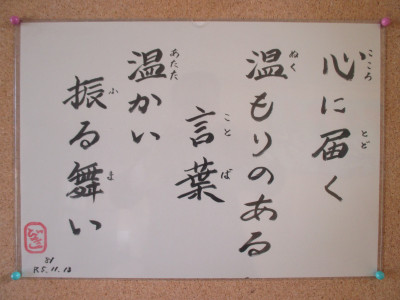 心に届く
温もりのある
言葉
温かい
振る舞い
こころ
とど
ぬく
ことば
あたた
ふ
ま
R5.11.18